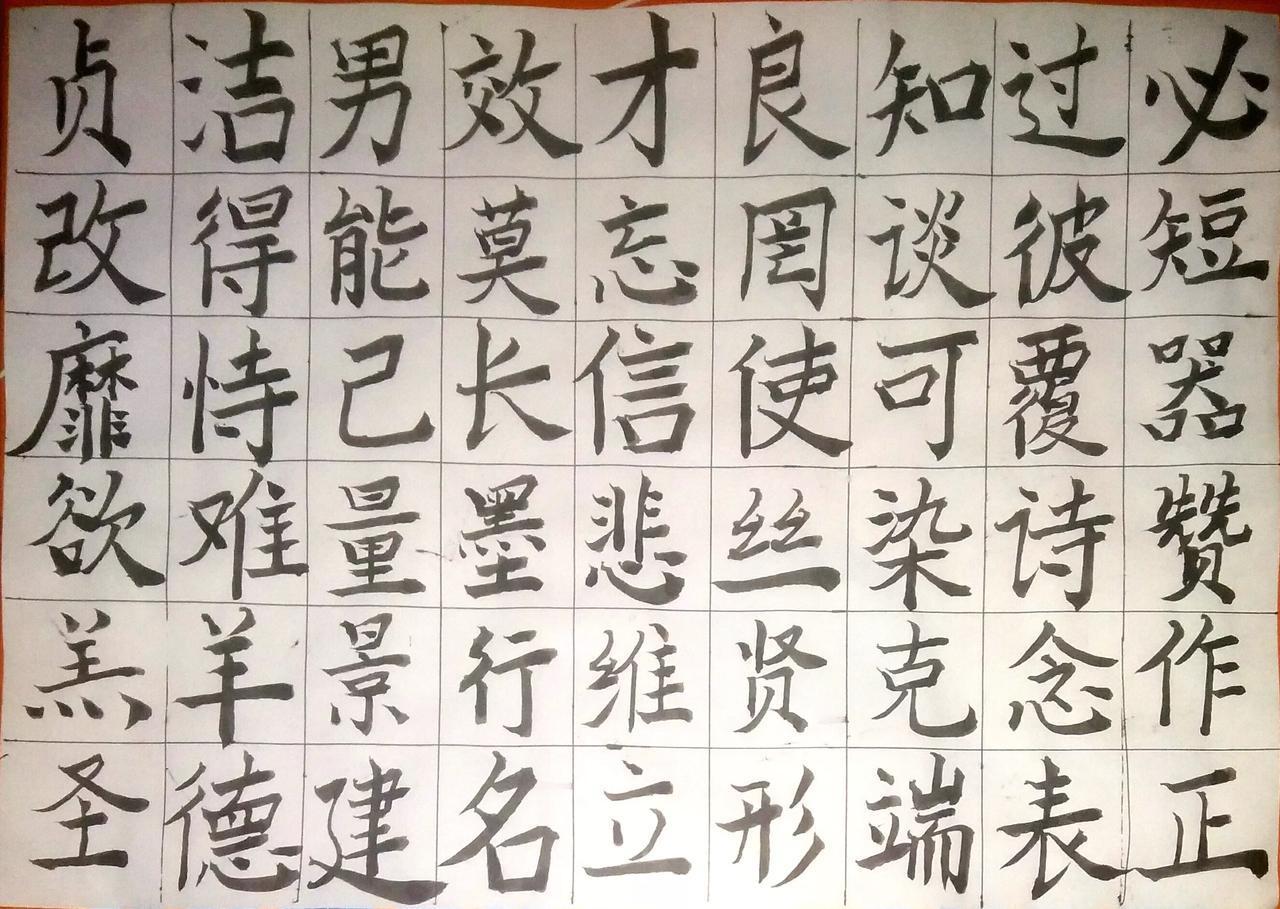 贞洁男效才良知过必
改得能莫忘罔谈彼短
靡恃己长信使可覆器
欲难量墨悲丝染诗赞
羔羊景行维贤克念作
圣德建名立形端表正